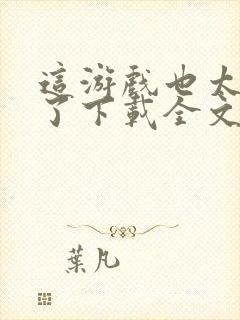 這游戲也太
了下載全文
葉凡